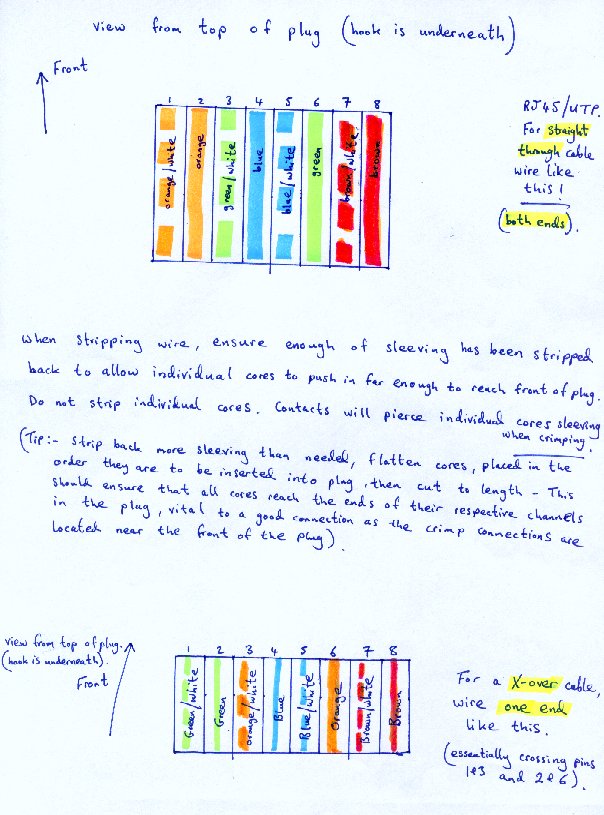 view from top of plug (hook is underneath)
Front
1 2 3 4 5 6 7 8
orange/white
orange
green/white
blue
blue/white
green
brown/white
brown
RJ45/UTP.
For straight
through cable
wire like
this!
(both ends).
When stripping wire, ensure enough of sleeving has been stripped
back to allow individual cores to push in far enough to reach front of plug.
Do not strip individual cores. Contacts will pierce individual cores sleeving
when crimping.
(Tip:- Strip back more sleeving than needed, flatten cores, placed in the
order they are to be inserted into plug, then cut to length - This
should ensure that all cores reach the ends of their respective channels
in the plug, vital to a good connection as the crimp connections are
located near the front of the plug).
view from top of plug.
(hook is underneath).
Front
1 2 3 4 5 6 7 8
Green/White
Green
orange/white
Blue
Blue/White
Orange
Brown/White
Brown
For a X-over cable,
wire one end
like this.
(essentially crossing pins
1&3 and 2&6).